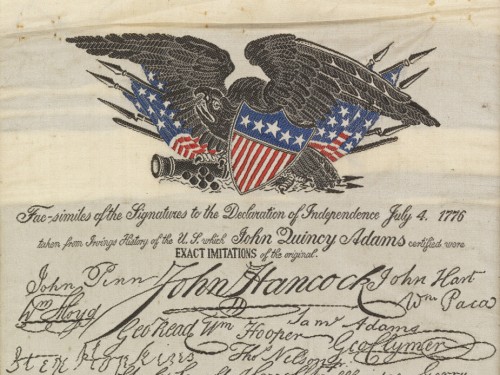 Fac-similes of the Signatures to the Declaration of Independence July 4. 1776
taken from Irvings History of the U.S. which John Quincy Adams certified were
EXACT IMITATIONS of the original.
John Penn John Hancock John Hart
Wm Floyd Wm Paca
Geo Read Wm Hooper Saml Adams
Step. Hopkins Thos Nelson jr. Geo Clymer